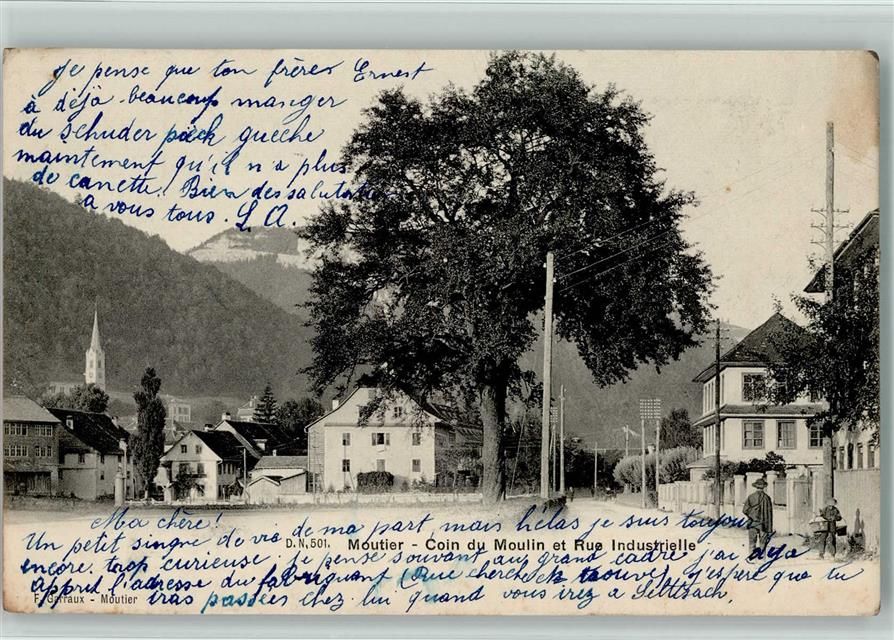 Je pense que ton frère Ernest
à déjà beaucoup manger
du schuder pick gueche
maintement qu'il n'a plus
de canette. Bien des salutation
a vous tous. L A.
Ma chère!
Un petit singne de vie de ma part, mais hélas je suis toujour
D. N, 501. Moutier - Coin du Moulin et Rue Industrielle
encore trop curieuse. je pense souvant au grand cadre j'ai déja
appril l'adresse du fabriquant (Que cherche trouve) j'espére que tu
F. Garraux - Moutier
iras passées chez lui quand vous irez a